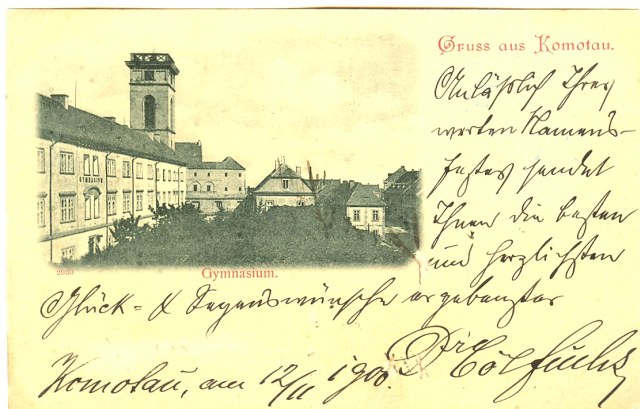 Gruss aus Komotau.
Anläßlich Ihres
werten Namens-
festes sendet
Ihnen die besten
und herzlichsten
GYMNASIUM
Gymnasium.
Glück- & Segenswünsche ergebenster
Komotau, am 12/11 1900.